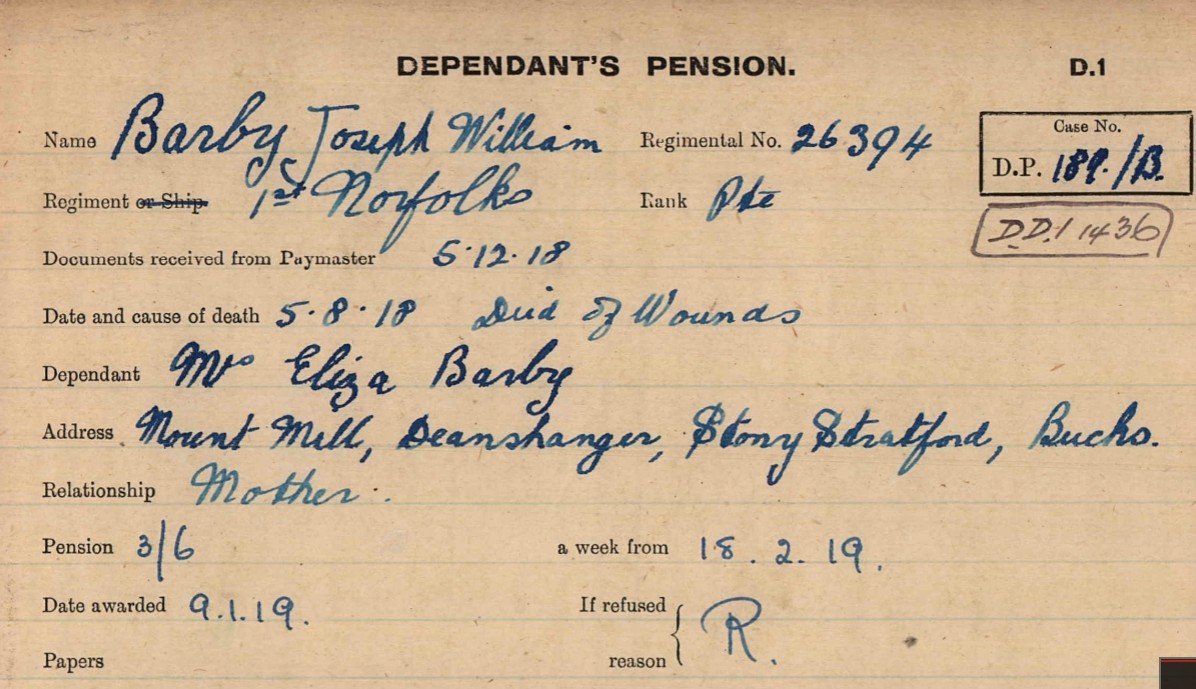 DEPENDANT'S PENSION. D.1
Name Barby, Joseph William Regimental No. 26394
Case No.
D.P. 189./B.
Regiment or Ship. 1st Norfolks Rank Pte
D.D.1 1436
Documents received from Paymaster 5.12.18
Date and cause of death 5.8.18 Died of Wounds
Dependant Mrs Eliza Barby
Address Mount Mill, Deanshanger, Stony Stratford, Bucks.
Relationship Mother.
Pension 3/6 a week from 18.2.19.
Date awarded 9.1.19. If refused R.
Papers reason